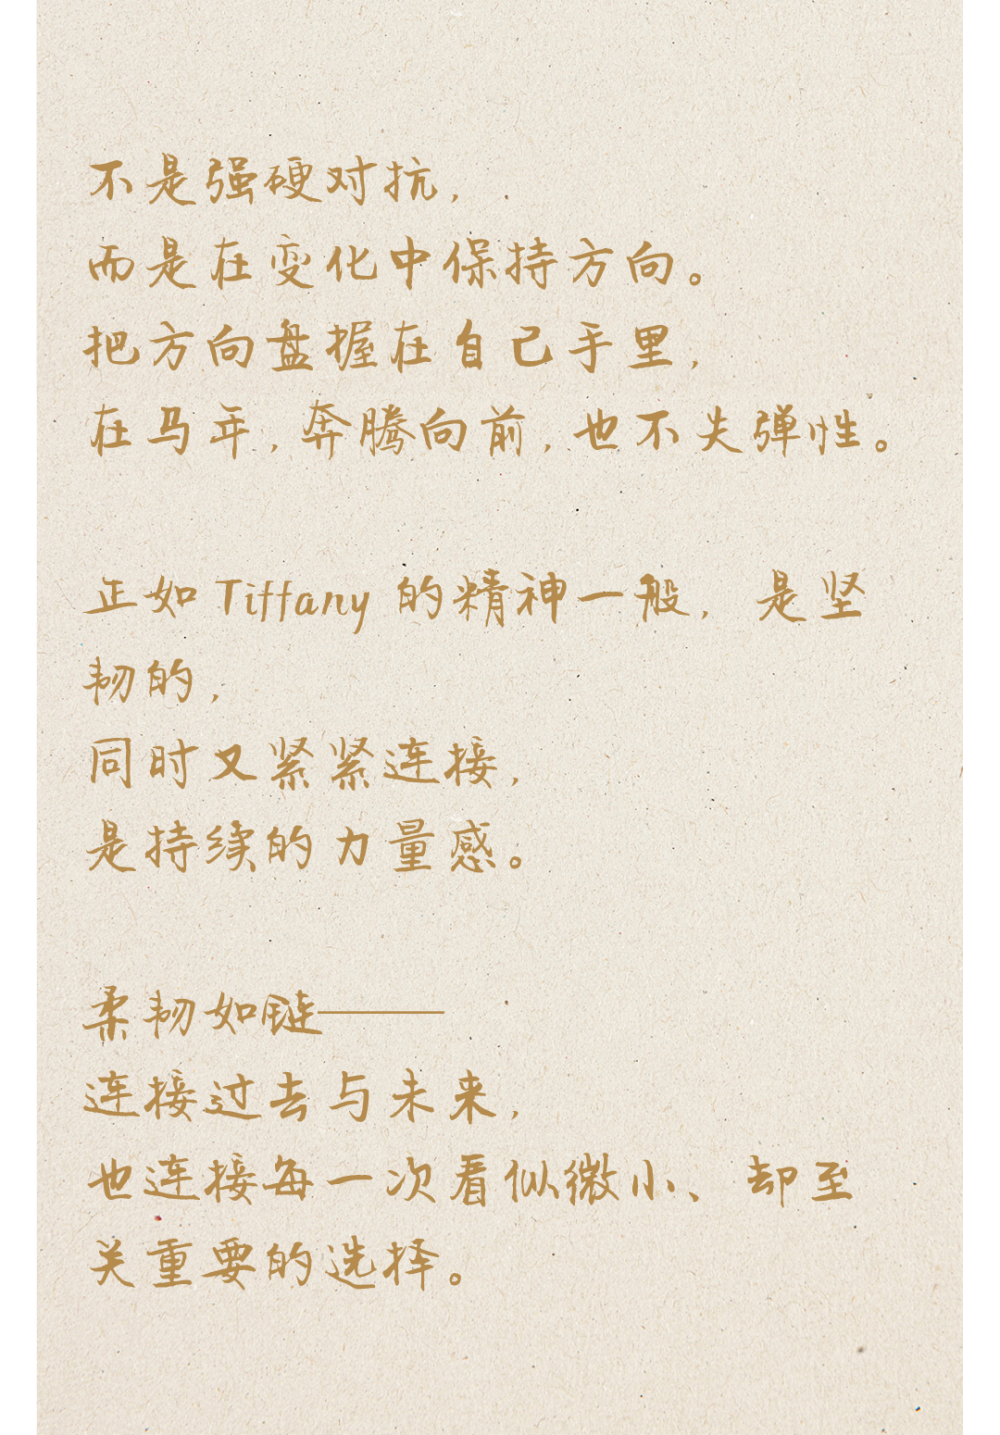 不是强硬对抗，
而是在变化中保持方向。
把方向盘握在自己手里，
在马年，奔腾向前，也不失弹性。
正如 Tiffany 的精神一般，是坚
韧的，
同时又紧紧连接，
是持续的力量感。
柔韧如链——
连接过去与未来，
也连接每一次看似微小、却至
关重要的选择。